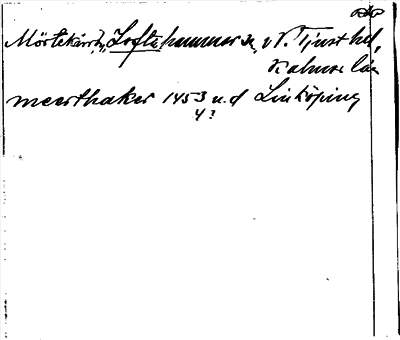 Mörtekärr, Loftahammar sn, N. Tjust hd,
Kalmar län
meerthaker 1453 u.d Linköping
4?